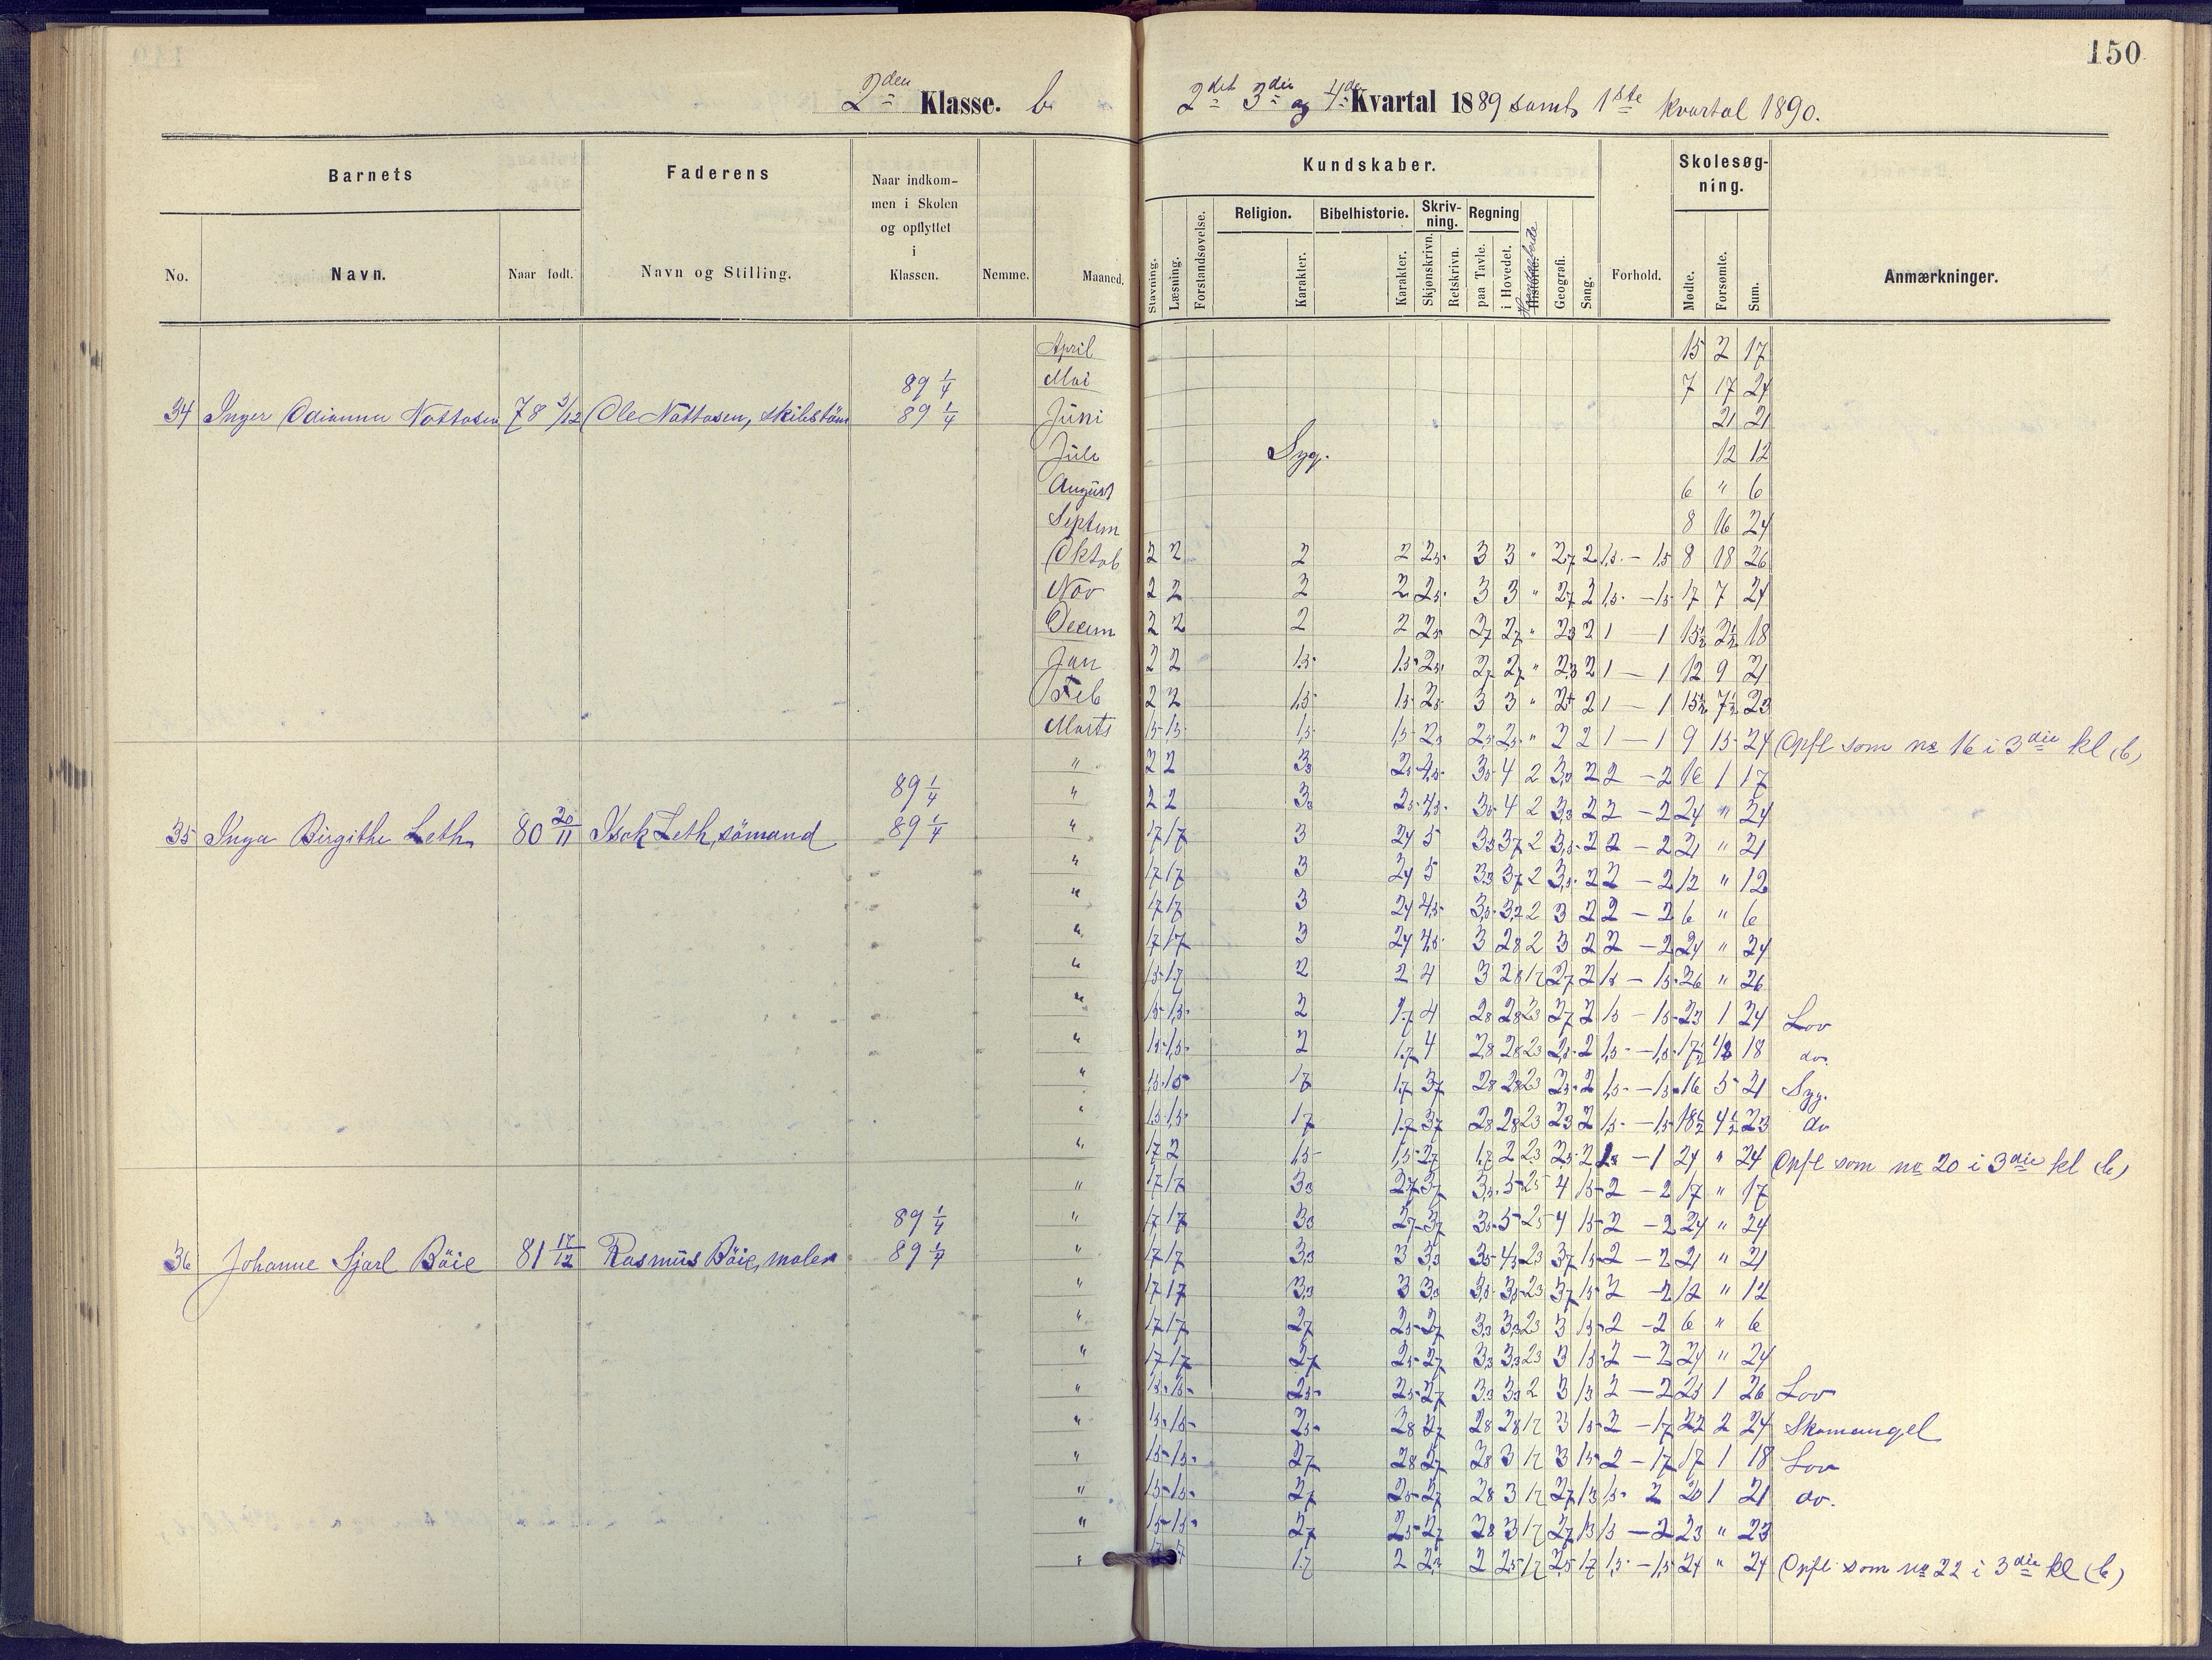 150
2den Klasse. b
2det 3die og 4de Kvartal 1889 samt 1ste kvartal 1890.
Barnets
Faderens
Naar indkommen i Skolen og opflyttet i Klassen.
Nemme.
Maaned.
Kundskaber.
Forhold.
Skolesøgning.
Anmærkninger.
No.
Navn.
Naar født.
Navn og Stilling.
Stavning.
Læsning.
Forstandsøvelse.
Religion.
Karakter.
Bibelhistorie.
Karakter.
Skrivning.
Skjønskrivn.
Retskrivn.
Regning
paa Tavle.
i Hovedet.
Historie.
Geografi.
Sang.
Mødte.
Forsømte.
Sum.
April 15 2 17
89 1/4 Mai 7 17 24
34 89 1/4 Juni 21 21
Juli Syg. 12 12
August 6 " 6
Septem 8 16 24
Oktob 2 2 2 2 2,5 3 3 " 2,7 2 1,5 - 1,5 8 18 26
Nov 2 2 2 2 2,5 3 3 " 2,7 2 1,5 - 1,5 17 7 24
Decem 2 2 2 2 2,5 2,7 2,7 " 2,3 2 1 - 1 15½ 2½ 18
Jan 2 2 1,5 1,5 2,5 2,7 2,7 " 2,3 2 1 - 1 12 9 21
Feb 2 2 1,5 1,5 2,5 3 3 " 2 1 - 1 15½ 7½ 23
Marts 1,5 1,5 1,5 1,5 2,5 2,5 " 2 2 1 - 1 9 15 24 Opfl som no 16 i 3die kl (b)
" 2 2 2 2 2 - 2 16 1 17
89 1/4 " 2 2 4 2 2 2 - 2 24 " 24
35 Inga Birgithe Leth 80 20/11 Isak Leth, sömand 89 1/4 " 1,7 1,7 3 2,4 5 3,3 3,7 2 3,5 2 2 - 2 21 " 21
" 1,7 1,7 3 2,4 5 3,3 3,7 2 3,5 2 2 - 2 12 " 12
" 1,7 1,7 3 2,4 4,5 3,5 3,2 2 3 2 2 - 2 6 " 6
" 1,7 1,7 3 2,4 4,5 3 2,8 2 3 2 2 - 2 24 " 24
" 1,5 1,7 2 2 4 3 2,8 1,7 2,7 2 1,5 - 1,5 26 " 26
" 1,5 1,5 2 1,7 4 2,8 2,8 2,3 2,7 2 1,5 - 1,5 23 1 24 Lov
" 1,5 1,5 2 1,7 4 2,8 2,8 2,3 2,5 2 1,5 - 1,5 17½ ½ 18 do.
" 1,5 1,5 1,7 1,7 3,7 2,8 2,8 2,3 2,5 2 1,5 - 1,5 16 5 21 Syg.
" 1,5 1,5 1,7 1,7 3,7 2,8 2,8 2,3 2,3 2 1,5 - 1,5 18½ 4½ 23 do
" 1,7 2 1,5 1,5 2,7 1,7 2 2,3 2,5 2 - 1 24 " 24 Opfl som no 20 i 3die kl (b)
" 1,7 1,7 3,3 2,7 3,7 3,5 5 2,5 4 1,5 2 - 2 17 " 17
89 1/4 " 1,7 1,7 3,3 2,7 3,7 3,5 5 2,5 4 1,5 2 - 2 24 " 24
36 Johanne Böie 81 17/12 Rasmus Böie, maler 89 1/4 " 1,7 1,7 3,3 3 3,3 3,5 4,5 2,3 3,7 1,5 2 - 2 21 " 21
" 1,7 1,7 3,3 3 3,3 3,5 3,5 2,3 3,7 1,5 2 - 2 12 " 12
" 1,7 1,7 2,7 2,5 2,7 3,3 3,3 2,3 3 1,5 2 - 2 6 " 6
" 1,7 1,7 2,7 2,5 2,7 3,3 3,3 2,3 3 1,5 2 - 2 24 " 24
" 1,5 1,5 2,5 2,5 2,7 3,3 3,3 2 3 1,5 2 - 2 25 1 26 Lov
" 1,5 1,5 2,5 2,8 2,7 2,8 2,8 1,7 3 1,5 2 - 1,7 22 2 24 Skomangel
" 1,5 1,5 2,7 2,8 2,7 2,8 3 1,7 3 1,5 2 - 1,7 17 1 18 Lov
" 1,5 1,5 2,7 2,5 2,7 2,8 3 1,7 2,7 1,5 1,5 2 20 1 21 do.
" 1,5 1,5 2,7 2,5 2,7 2,8 3 1,7 2,7 1,5 1,5 - 2 23 " 23
" 1,7 2 2 2,5 1,7 2,5 1,7 1,5 - 1,5 24 " 24 Opfl som no 22 i 3die kl (b)